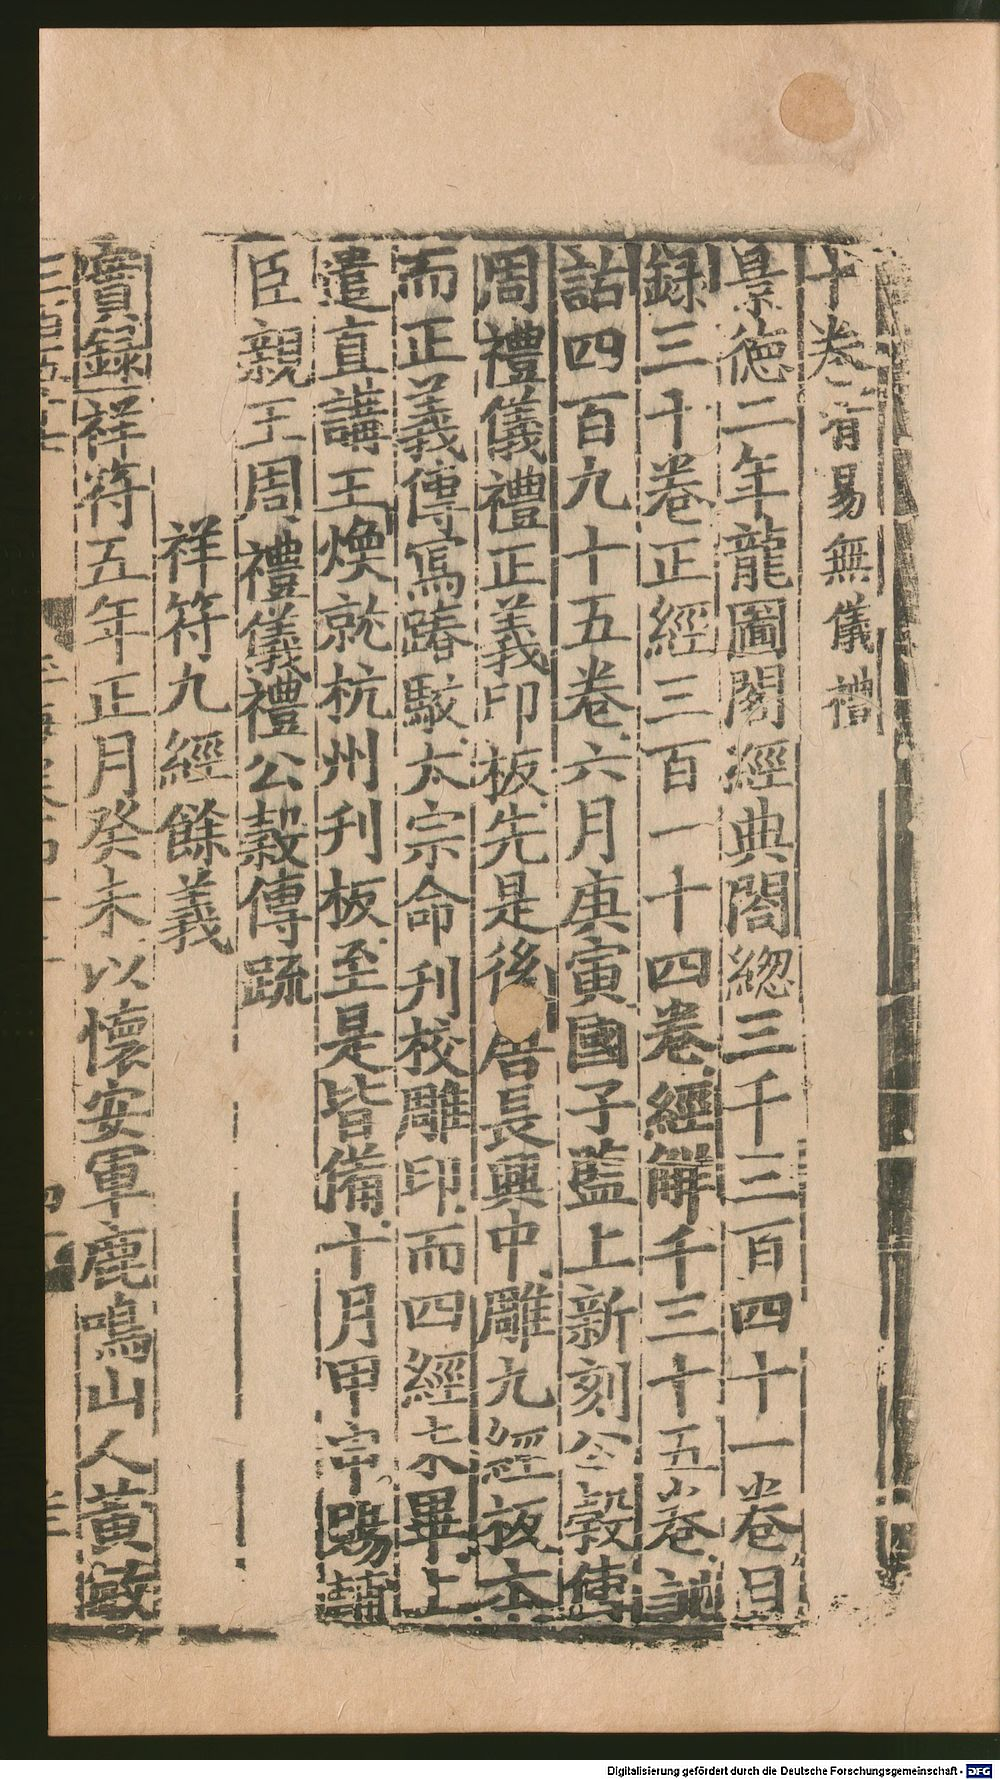 十卷有易無儀禮
景德二年龍圖閣經典閣緫三千三百四十一卷目
録三十卷正經三百一十四卷經解千三十五卷訓
詁四百九十五卷六月庚寅國子監上新刻公穀傳
周禮儀禮正義印板先是後唐長興中雕九經板本
而正義傳寫踳駁太宗命刋校雕印而四經未畢上
遣直講王煥就杭州刋板至是皆備十月甲申賜輔
臣親王周禮儀禮公穀傳疏
祥符九經餘義
實録祥符五年正月癸未以懷安軍鹿鳴山人黃敏
Digitalisierung gefördert durch die Deutsche Forschungsgemeinschaft - DFG